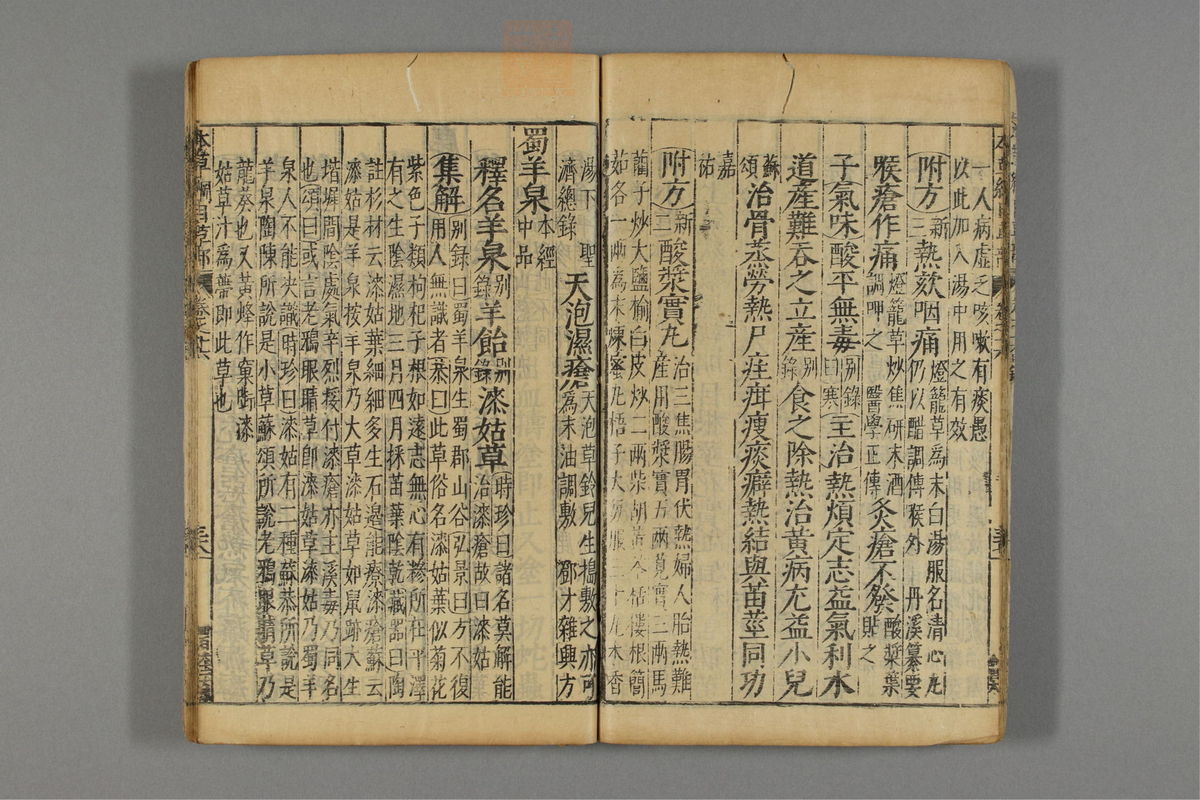 一人病虛乏咳嗽有痰愚
以此加入湯中用之有效
附方新三熱欬咽痛燈籠草為末白湯服名清心丸仍以醋調傅喉外 丹溪纂要
喉瘡作痛燈籠草炒焦研末酒調呷之 醫學正傳灸瘡不發酸漿葉貼之
子氣味酸平無毒别録曰寒主治熱煩定志益氣利水
道產難吞之立產别錄食之除熱治黃病尤益小兒
蘇頌治骨蒸勞熱尸疰疳瘦痰癖熱結與苗莖同功
嘉祐
附方新二酸漿實丸治三焦腸胃伏熱婦人胎熱難產用酸漿實五兩莧實三兩馬
藺子炒大鹽榆白皮炒二兩柴胡黃芩栝樓根䕡
茹各一兩為末煉蜜丸梧子大每服三十九木香
湯下 聖濟總錄天泡濕瘡天泡草鈴兒生搗敷之亦可為末油調敷 鄧才雜興方
蜀羊泉本經中品
釋名羊泉别錄羊飴别錄漆姑草時珍曰諸名莫解能治漆瘡故曰漆姑
集解别錄曰蜀羊泉生蜀郡山谷弘景曰方不復用人無識者恭曰此草俗名漆姑葉似菊花
紫色子類枸杞子根如遠志無心有糝所在平澤
有之生陰濕地三月四月採苗葉陰乾藏器曰陶
註杉材云漆姑葉細細多生石邊能療漆瘡蘇云
漆姑是羊泉按羊泉乃大草漆姑草如鼠跡大生
堦墀間陰處氣辛烈挼付漆瘡亦主溪毒乃同名
也頌曰或言老鴉眼睛草卽漆姑草漆姑乃蜀羊
泉人不能决識時珍曰漆姑有二種蘇恭所說是
羊泉陶陳所說是小草蘇頌所說老鴉眼睛草乃
龍葵也又黃蜂作窠銜漆
姑草汁為蔕即此草也
本草綱目草部 卷之十六